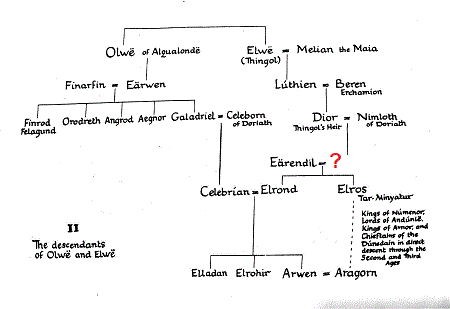 Olwë of Alqualondë
Elwë = Melian the Maia
(Thingol)
Finarfin = Eärwen
Lúthien = Beren
Erchamion
Finrod
Felagund
Orodreth
Angrod
Aegnor
Galadriel = Celeborn
of Doriath
Dior = Nimloth
Thingol's Heir
of Doriath
Eärendil = ?
Celebrían = Elrond
Elros
Tar-Minyatur
Kings of Númenor,
Lords of Andúnië,
Kings of Arnor, and
Chieftains of the
Dúnedain in direct
descent through the
Second and Third
Ages
II
The descendants
of Olwë and Elwë
Elladan
Elrohir
Arwen = Aragorn